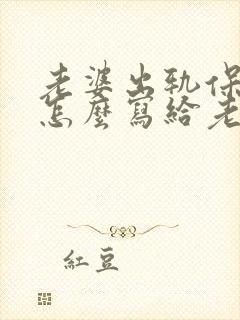 老婆出轨保
怎麼寫給老
紅豆